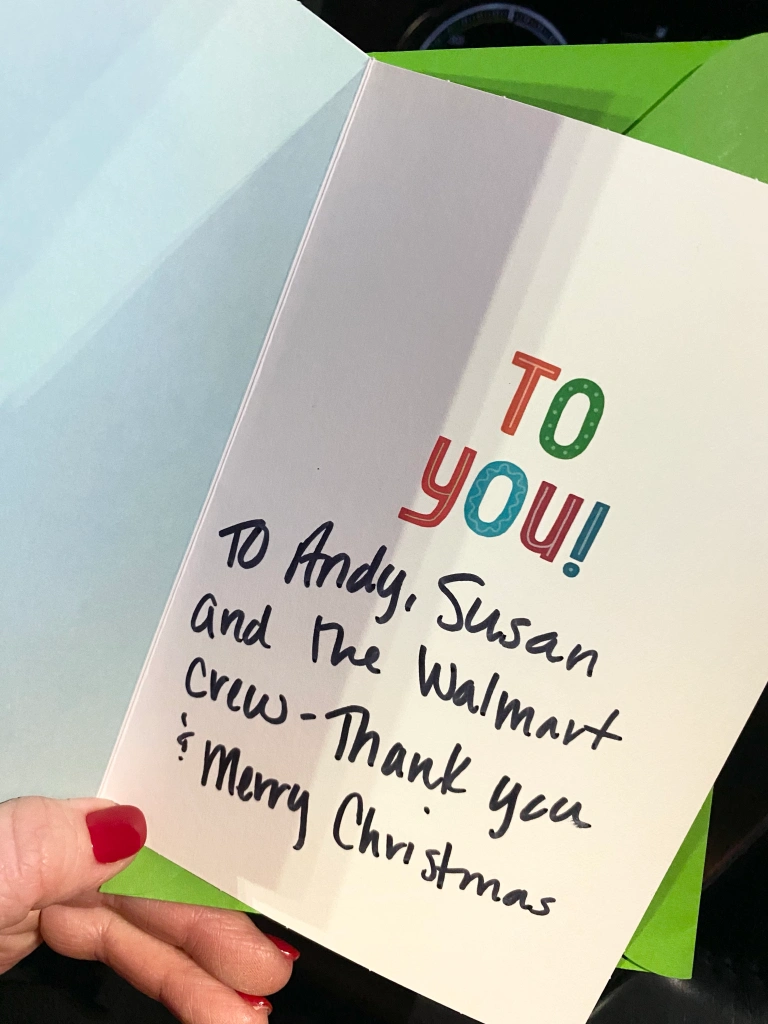 TO
YOU!
To Andy, Susan
and the Walmart
crew - Thank you
& Merry Christmas